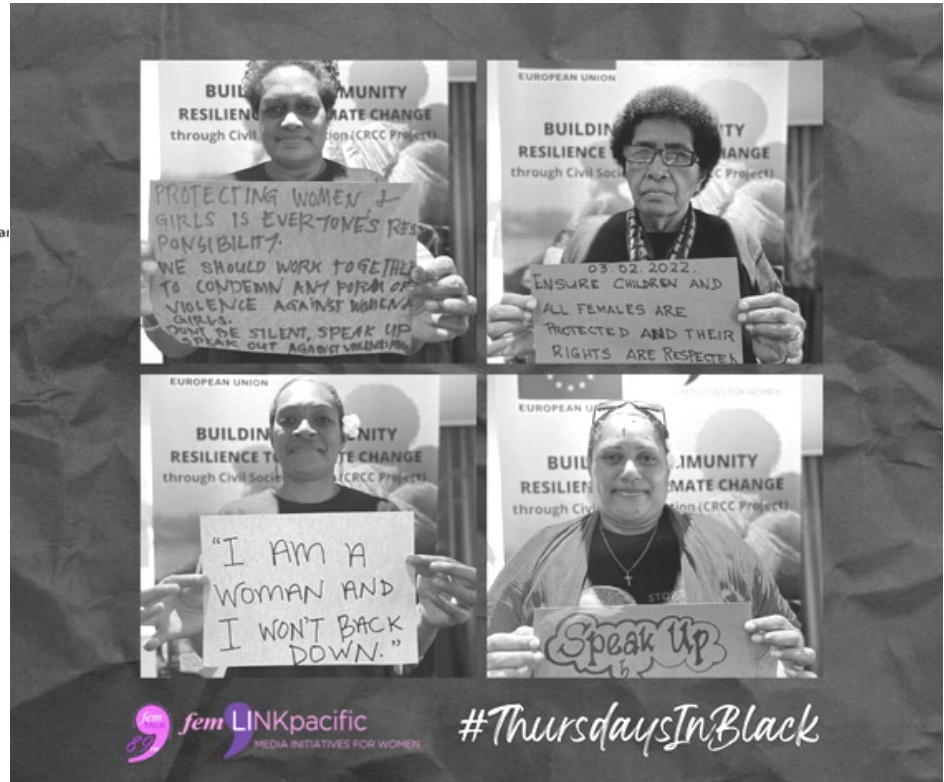 BUIL MUNITY
RESILIEN MATE CHANGE
through Civil tion (CRCC Project)
PROTECTING WOMEN, &
GIRLS IS EVERYONE'S RES
PONSIBILITY.
WE SHOULD WORK TOGETHE
TO CONDEMN ANY FORM OF
VIOLENCE AGAINST WOMEN &
GIRLS.
DONT BE SILENT, SPEAK UP
SPEAK OUT AGAINST
EUROPEAN UNION
BUILDIN TY
RESILIENCE HANGE
through Civil Socie CC Project)
03.02.2022.
ENSURE CHILDREN AND
ALL FEMALES ARE
PROTECTED AND THEIR
RIGHTS ARE RESPECTED
EUROPEAN UNION
BUILDIN NITY
RESILIENCE T TE CHANGE
through Civil Socie (CRCC Project)
"I AM A
WOMAN AND
I WON'T BACK
DOWN."
INITIATIVES FOR WOMEN
EUROPEAN U
BUIL MUNITY
RESILIEN MATE CHANGE
through Civi tion (CRCC Project)
STOP
Speak Up
fem
TALK
89
fem LINKpacific
MEDIA INITIATIVES FOR WOMEN
#ThursdaysInBlack